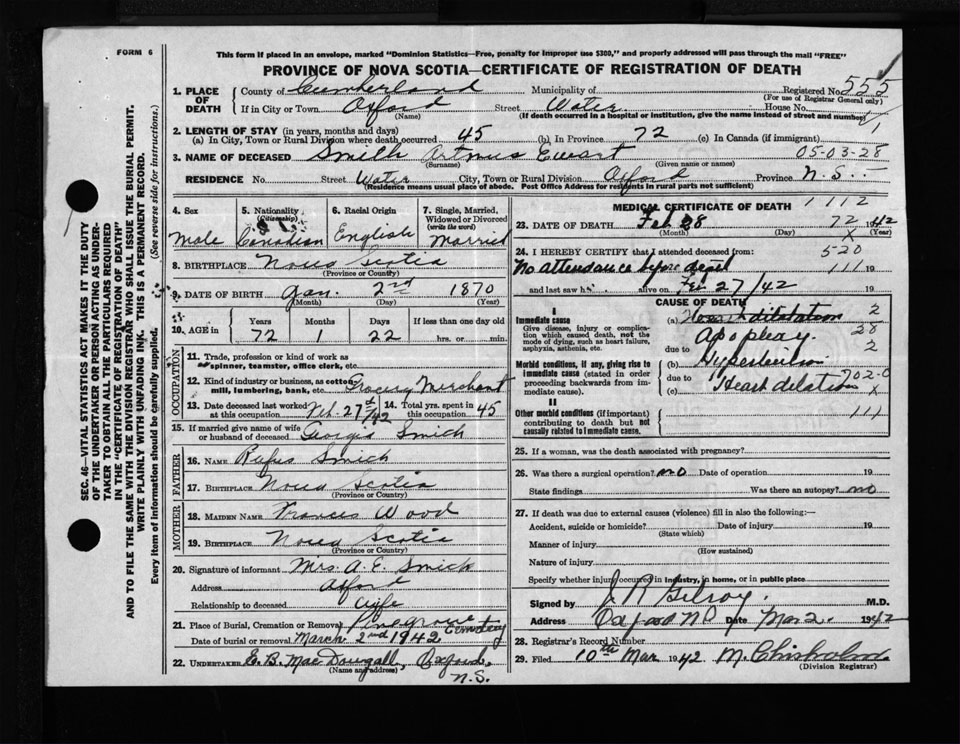 FORM 6
This form if placed in an envelope, marked "Dominion Statistics—Free, penalty for improper use $300," and properly addressed will pass through the mail "FREE"
PROVINCE OF NOVA SCOTIA—CERTIFICATE OF REGISTRATION OF DEATH
SEC. 46—VITAL STATISTICS ACT MAKES IT THE DUTY
OF THE UNDERTAKER OR PERSON ACTING AS UNDER-
TAKER TO OBTAIN ALL THE PARTICULARS REQUIRED
IN THE "CERTIFICATE OF REGISTRATION OF DEATH"
AND TO FILE THE SAME WITH THE DIVISION REGISTRAR WHO SHALL ISSUE THE BURIAL PERMIT.
WRITE PLAINLY WITH UNFADING INK. THIS IS A PERMANENT RECORD.
Every item of Information should be carefully supplied. (See reverse side for Instructions.)
1. PLACE OF DEATH County of Cumberland Municipality of Registered No. 555
(For use of Registrar General only)
If in City or Town Oxford Street Water House No.
(Name) (If death occurred in a hospital or institution, give the name instead of street and number)
1
2. LENGTH OF STAY (in years, months and days)
(a) In City, Town or Rural Division where death occurred 45 (b) In Province 72 (c) In Canada (if immigrant)
3. NAME OF DECEASED Smith Artmus Ewart 05-03-28
(Surname) (Given name or names)
RESIDENCE No. Street Water City, Town or Rural Division Oxford Province N.S.
(Residence means usual place of abode. Post Office Address for residents in rural parts not sufficient)
4. Sex Male
5. Nationality (Citizenship) Canadian
6. Racial Origin English
7. Single, Married, Widowed or Divorced (write the word) Married
8. BIRTHPLACE Nova Scotia
(Province or Country)
9. DATE OF BIRTH Jan. 2nd 1870
(Month) (Day) (Year)
10. AGE in Years Months Days If less than one day old
72 1 22 hrs. or min.
OCCUPATION
11. Trade, profession or kind of work as spinner, teamster, office clerk, etc.
12. Kind of industry or business, as cotton mill, lumbering, bank, etc. Grocery Merchant
13. Date deceased last worked at this occupation Feb. 27th/42 14. Total yrs. spent in this occupation 45
15. If married give name of wife or husband of deceased Georgia Smith
FATHER
16. NAME Rufus Smith
17. BIRTHPLACE Nova Scotia
(Province or Country)
MOTHER
18. MAIDEN NAME Frances Wood
19. BIRTHPLACE Nova Scotia
(Province or Country)
20. Signature of informant Mrs. A. E. Smith
Address Oxford
Relationship to deceased Wife
21. Place of Burial, Cremation or Removal Pinegrove Cemetery
Date of burial or removal March 2nd 1942
22. UNDERTAKER E. B. MacDougall, Oxford, N.S.
(Name and address)
MEDICAL CERTIFICATE OF DEATH 1112
23. DATE OF DEATH Feb 28 72 1942
(Month) (Day) x (Year)
24. I HEREBY CERTIFY that I attended deceased from: 520
No attendance before death 111 19
and last saw h alive on Feb 27/42 19
CAUSE OF DEATH
I
Immediate cause
Give disease, injury or complication which caused death, not the mode of dying, such as heart failure, asphyxia, asthenia, etc.
(a) Heart dilatation 2
Apoplexy 28
due to 2
Morbid conditions, if any, giving rise to immediate cause (stated in order proceeding backwards from immediate cause).
(b) Hypertension
due to 702-0
(c) Heart dilation x
II
Other morbid conditions (if important) contributing to death but not causally related to Immediate cause. 111
25. If a woman, was the death associated with pregnancy?
26. Was there a surgical operation? no Date of operation 19
State findings Was there an autopsy? no
27. If death was due to external causes (violence) fill in also the following:—
Accident, suicide or homicide? Date of injury 19
(State which)
Manner of injury
(How sustained)
Nature of injury
Specify whether injury occurred in industry, in home, or in public place
Signed by J. R. Gilroy M.D.
Address Oxford NS Date Mar 2. 1942
28. Registrar's Record Number
29. Filed 10th Mar 1942 M. Chisholm
(Division Registrar)